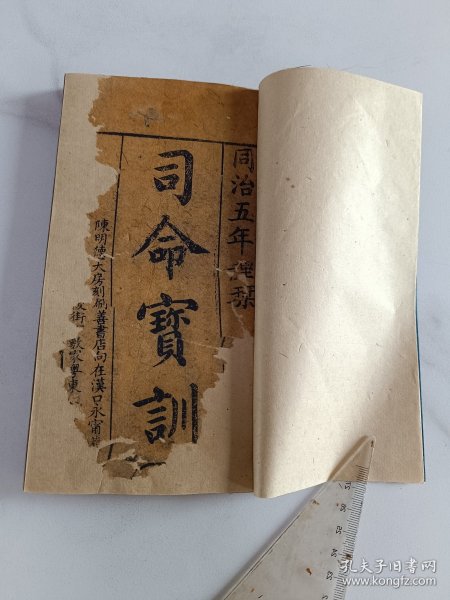 同治五年 栞
司命寶訓
陳明德大房刻刷善書店向在漢口永甯
街 敬家粵東
孔夫子旧书网
www.kongfz.com